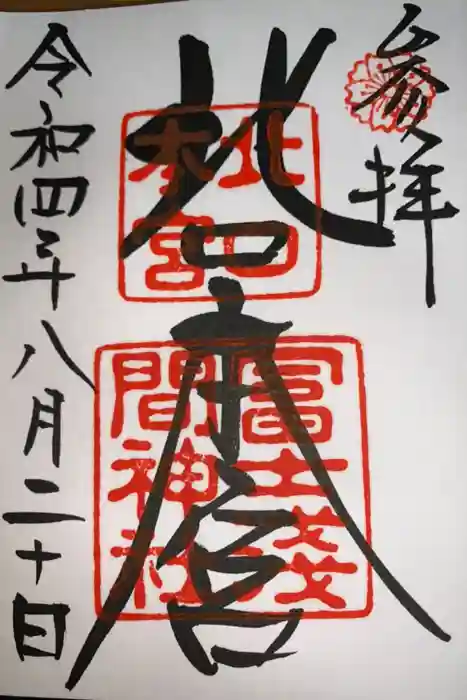 参拝
北口本宮
北口
本宮
冨士浅
間神社
令和四年八月二十日